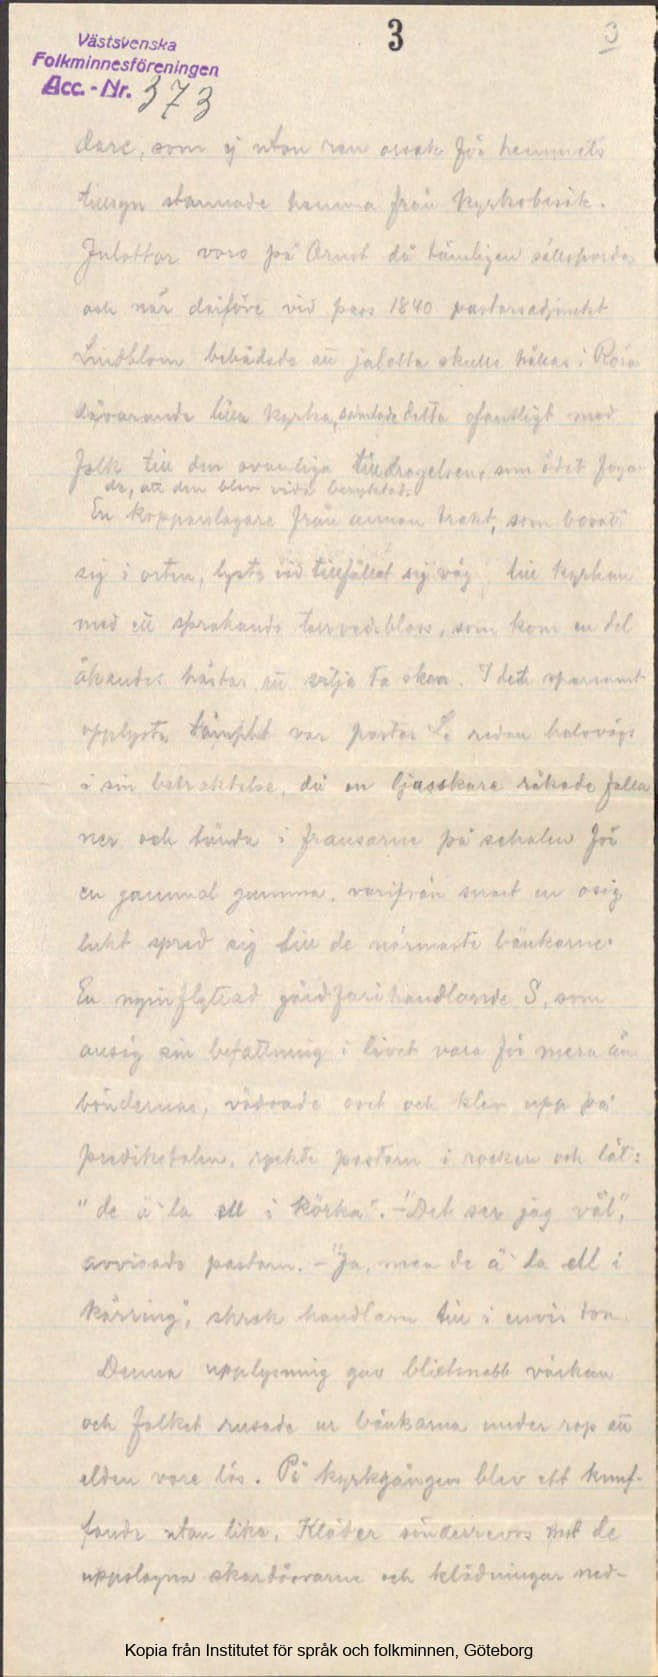 3
3
Västsvenska
Folkminnesföreningen
Acc.-Nr. 373
dare, som ej utan ren orsak för hemmets
tillsyn stannade hemma från kyrkobesök.
Julottor voro på Orust då tämligen sällsporda
och när därföre vid pass 1840 pastorsadjunkt
Lindblom bebådade att julotta skulle hållas i Röra
dåvarande lilla kyrka, samlade detta ofantligt med
folk till den ovanliga tilldragelsen, som ödet foga-
de, att den blev vida beryktad.
En kopparslagare från annan trakt, som bosatt
sig i orten, lyste vid tillfället sig väg till kyrkan
med ett sprakande torrvedsbloss, som kom en del
åkandes hästar att vilja ta sken. I det sparsamt
upplysta templet var pastor L. redan halvvägs
i sin betraktelse, då en ljusskare råkade falla
ner och tända i fransarne på schalen för
en gammal gumma, varifrån snart en osig
lukt spred sig till de närmaste bänkarne.
En nyinflyttad gårdfarihandlande S, som
ansåg sin befattning i livet vara för mera än
bönderne, vädrade oset och klev upp på
predikstolen, ryckte pastorn i rocken och lät:
"de ä la ell i körka". - "Det ser jag väl",
avvisade pastorn. - "Ja, men de ä la ell i
kärring", skrek handlarn till i envis ton.
Denna upplysning gav blixtsnabb värkan
och folket rusade ur bänkarna under rop att
elden vore lös. På kyrkgången blev ett knuf-
fande utan like. Kläder sönderrevos mot de
uppslagna skardörrarne och klädningar ned-
Kopia från Institutet för språk och folkminnen, Göteborg